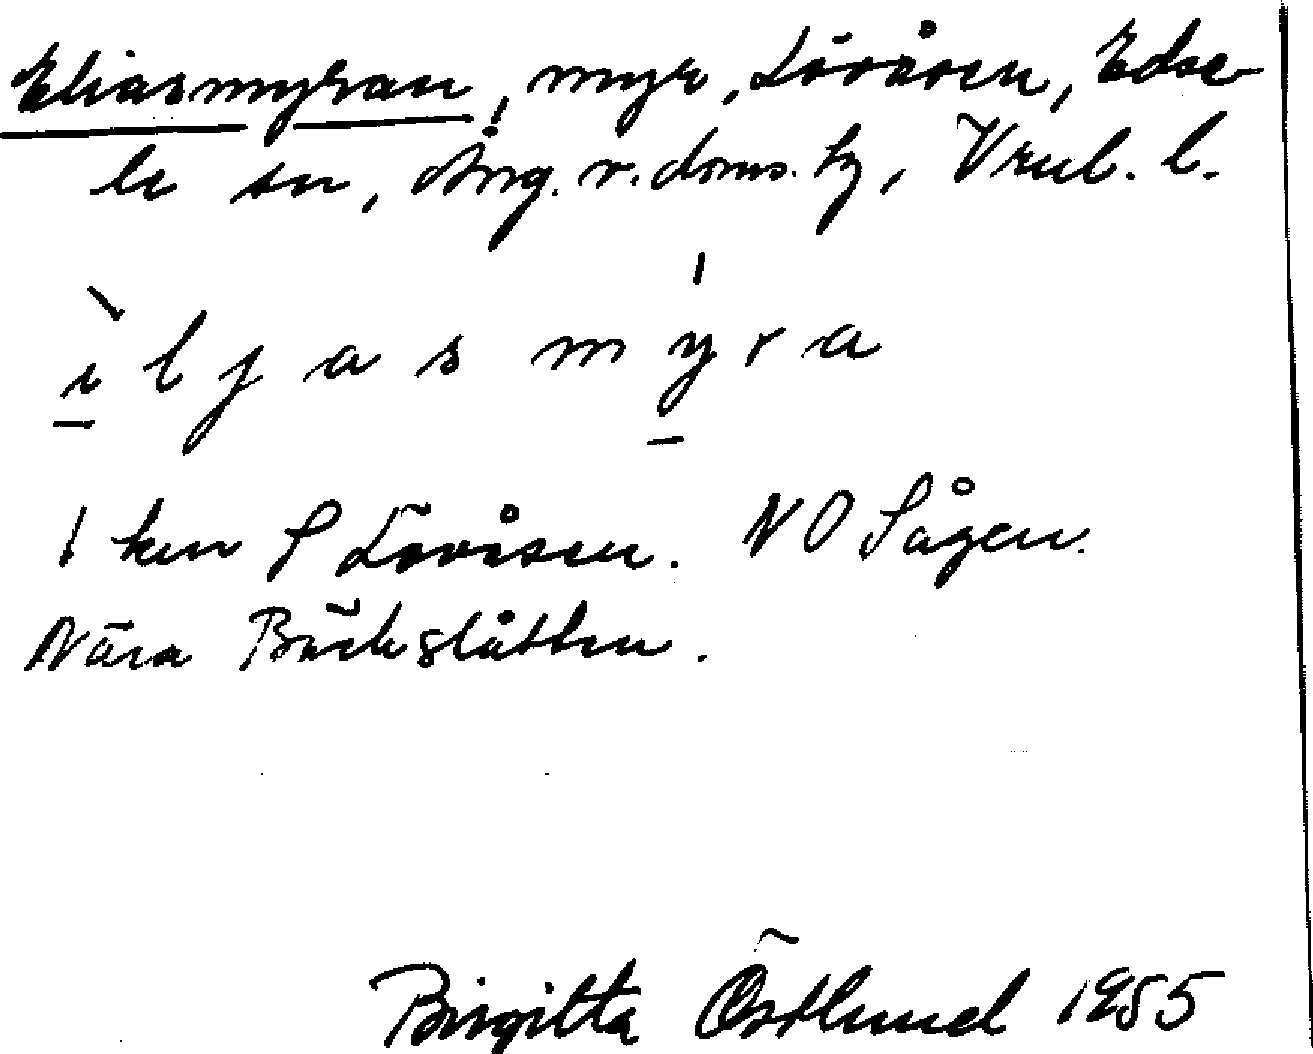 Eliasmyran, myr, Lövåsen, Edse-
le sn, Ång. v. doms. hg, Vnl. l.
ìljasmýra
1 km S Lövåsen. NO Sågen.
Nära Bäckslåtten.
Birgitta Östlund 1955